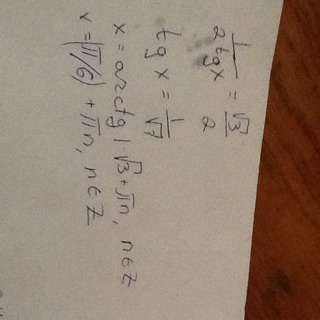 1/(2tgx) = √3/2
tg x = 1/√3
x = arctg 1√3 + πn, n∈Z
x = (π/6) + πn, n∈Z